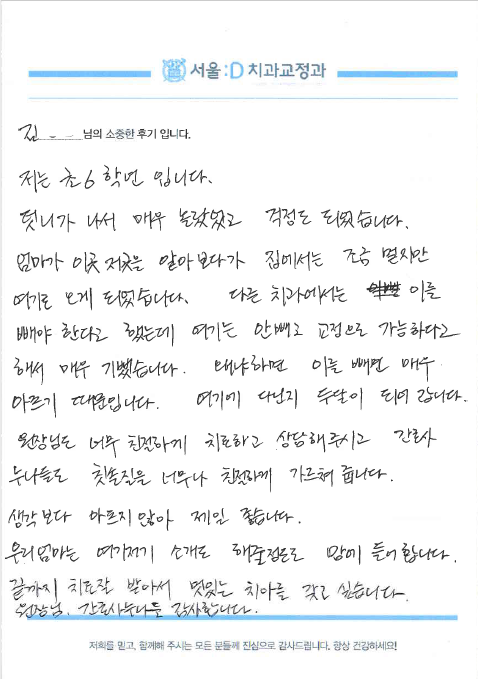 서울:D 치과교정과
김 _ _ 님의 소중한 후기 입니다.
저는 초6 학년 입니다.
덧니가 나서 매우 놀랐었고 걱정도 되었습니다.
엄마가 이곳 저곳을 알아보다가 집에서는 조금 멀지만
여기로 오게 되었습니다. 다른 치과에서는 이를
빼야 한다고 했는데 여기는 안빼고 교정으로 가능하다고
해서 매우 기뻤습니다. 왜냐하면 이를 빼면 매우
아프기 때문입니다. 여기에 다닌지 두달이 되어 갑니다.
원장님도 너무 친절하게 치료하고 상담해주시고 간호사
누나들도 칫솔질을 너무나 친절하게 가르쳐 줍니다.
생각보다 아프지 않아 제일 좋습니다.
우리엄마는 여기저기 소개도 해줄정도로 맘에 들어합니다.
끝까지 치료잘 받아서 멋있는 치아를 갖고 싶습니다.
원장님, 간호사누나들 감사합니다.
저희를 믿고, 함께해 주시는 모든 분들께 진심으로 감사드립니다. 항상 건강하세요!